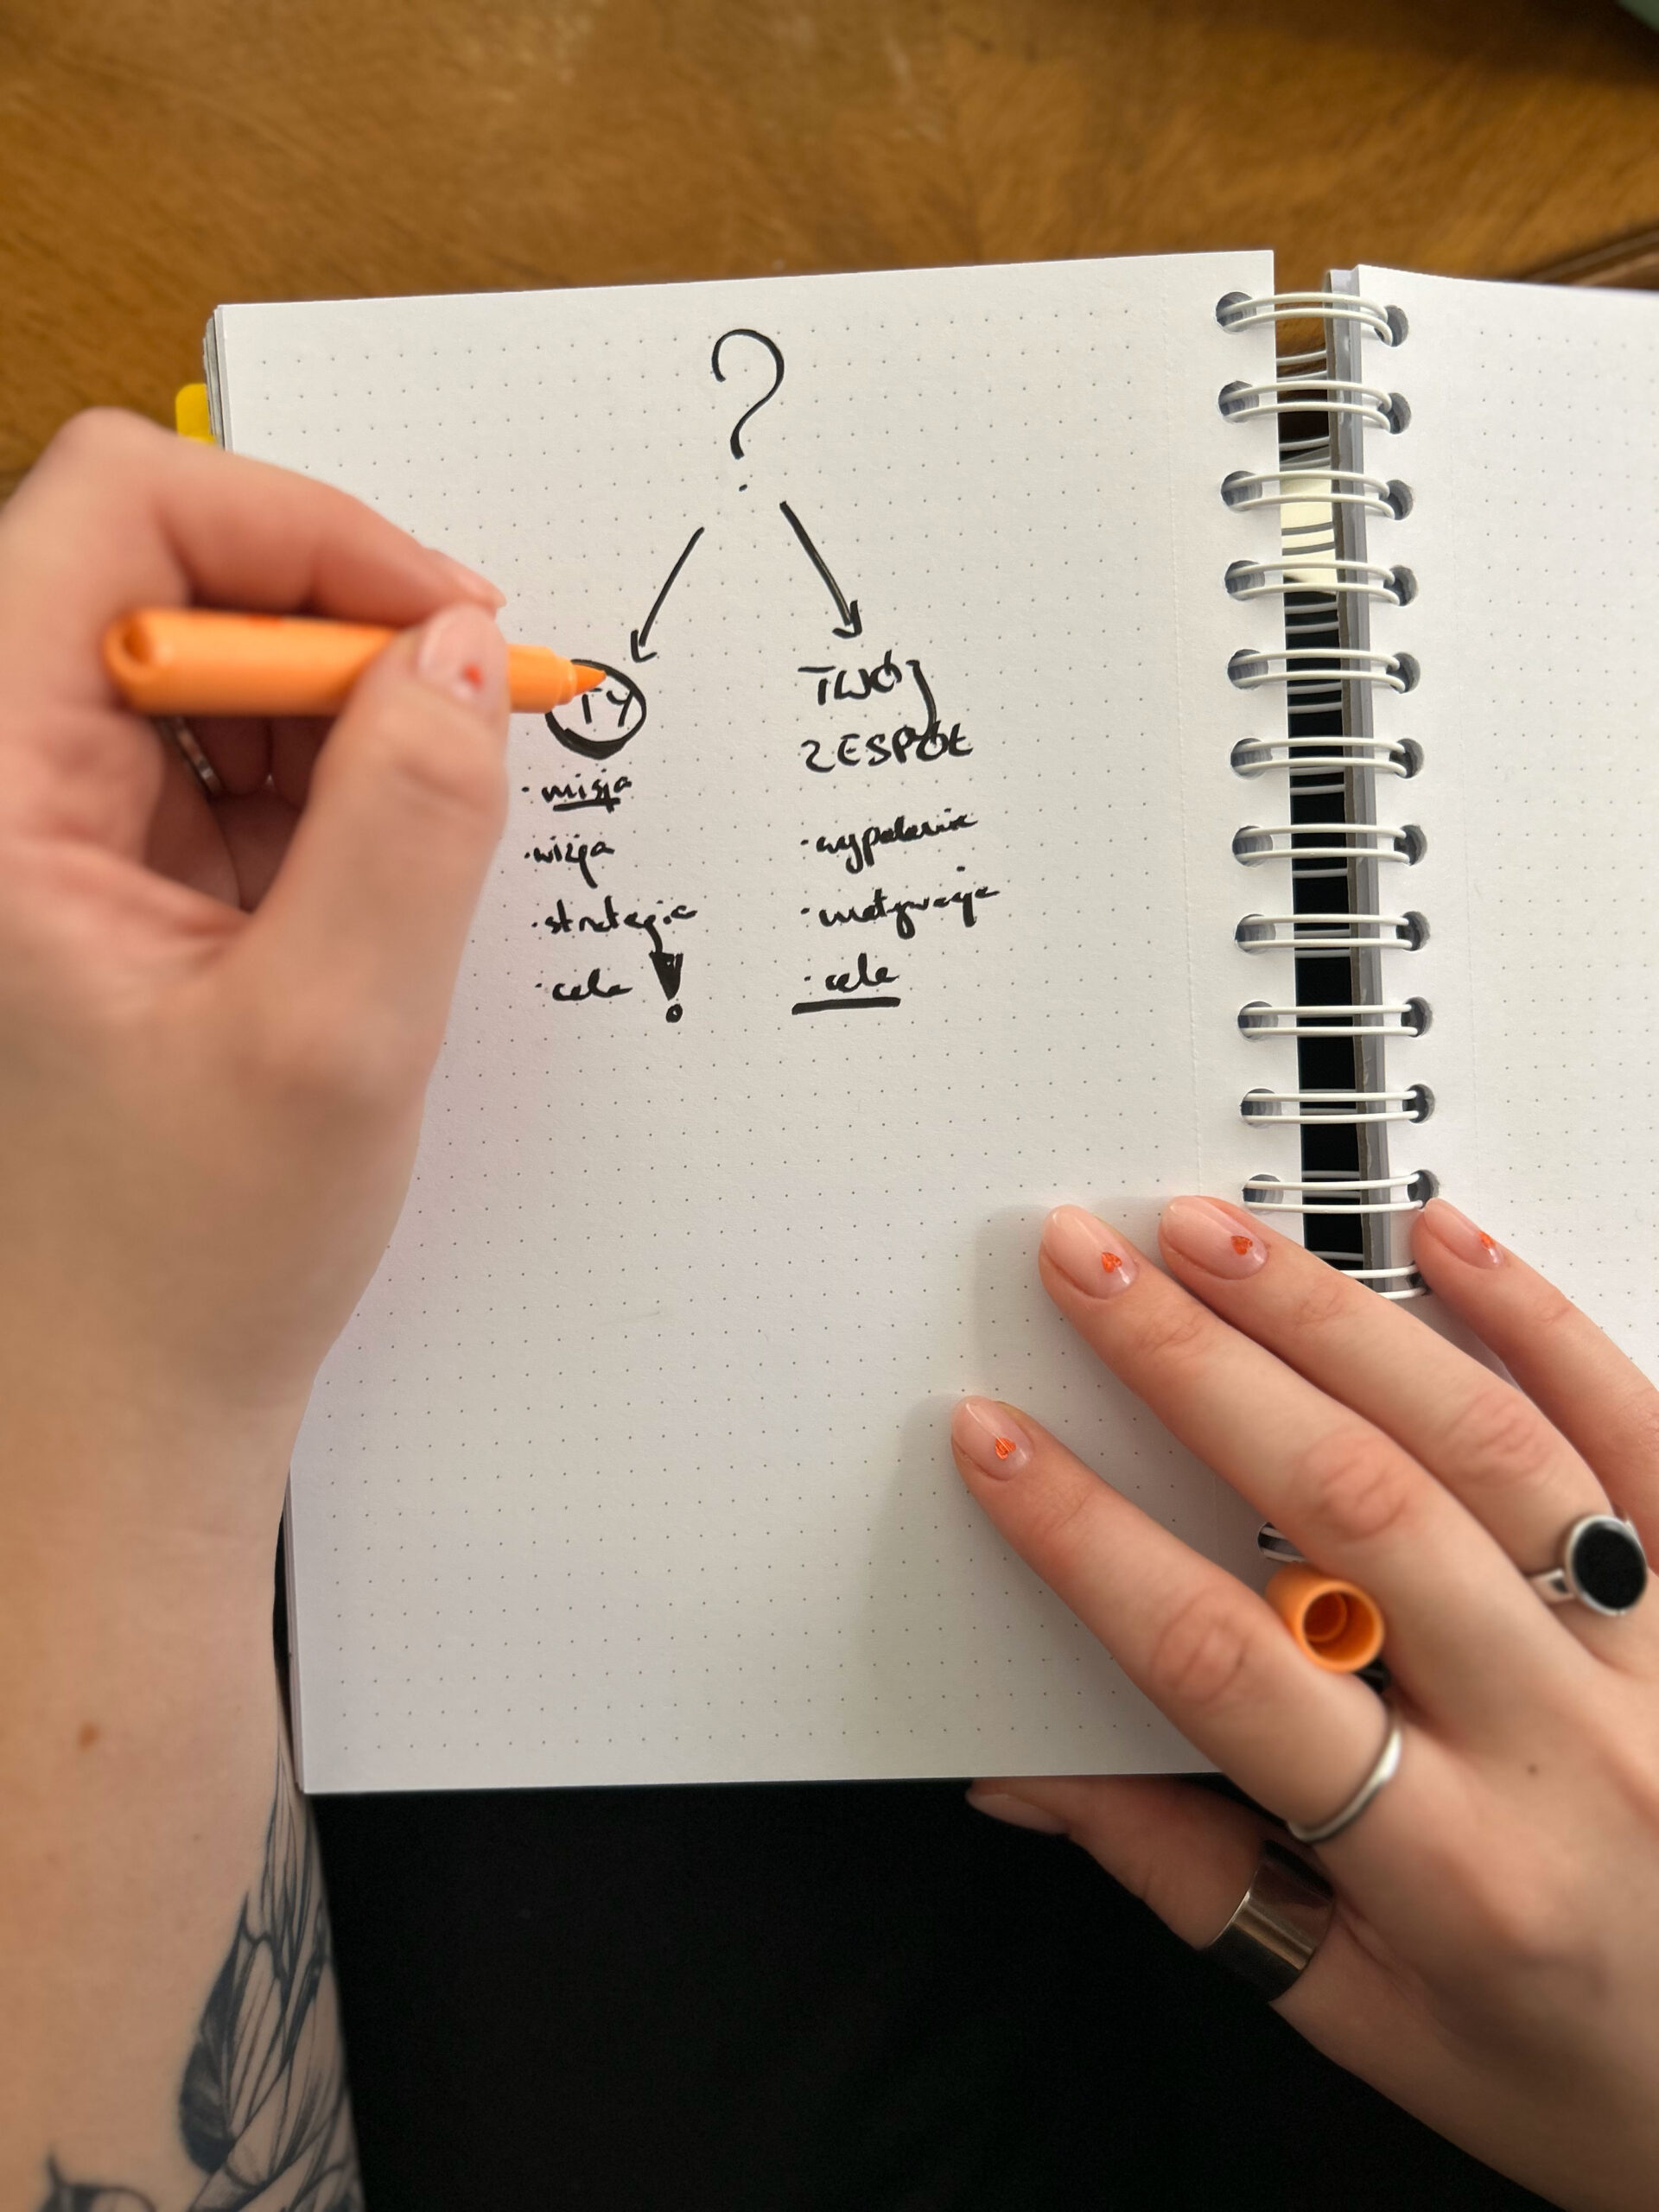 ?
TY
· misja
· wizja
· strategia
· cele !
TWÓJ
ZESPÓŁ
· wypalenie
· motywacja
· cele